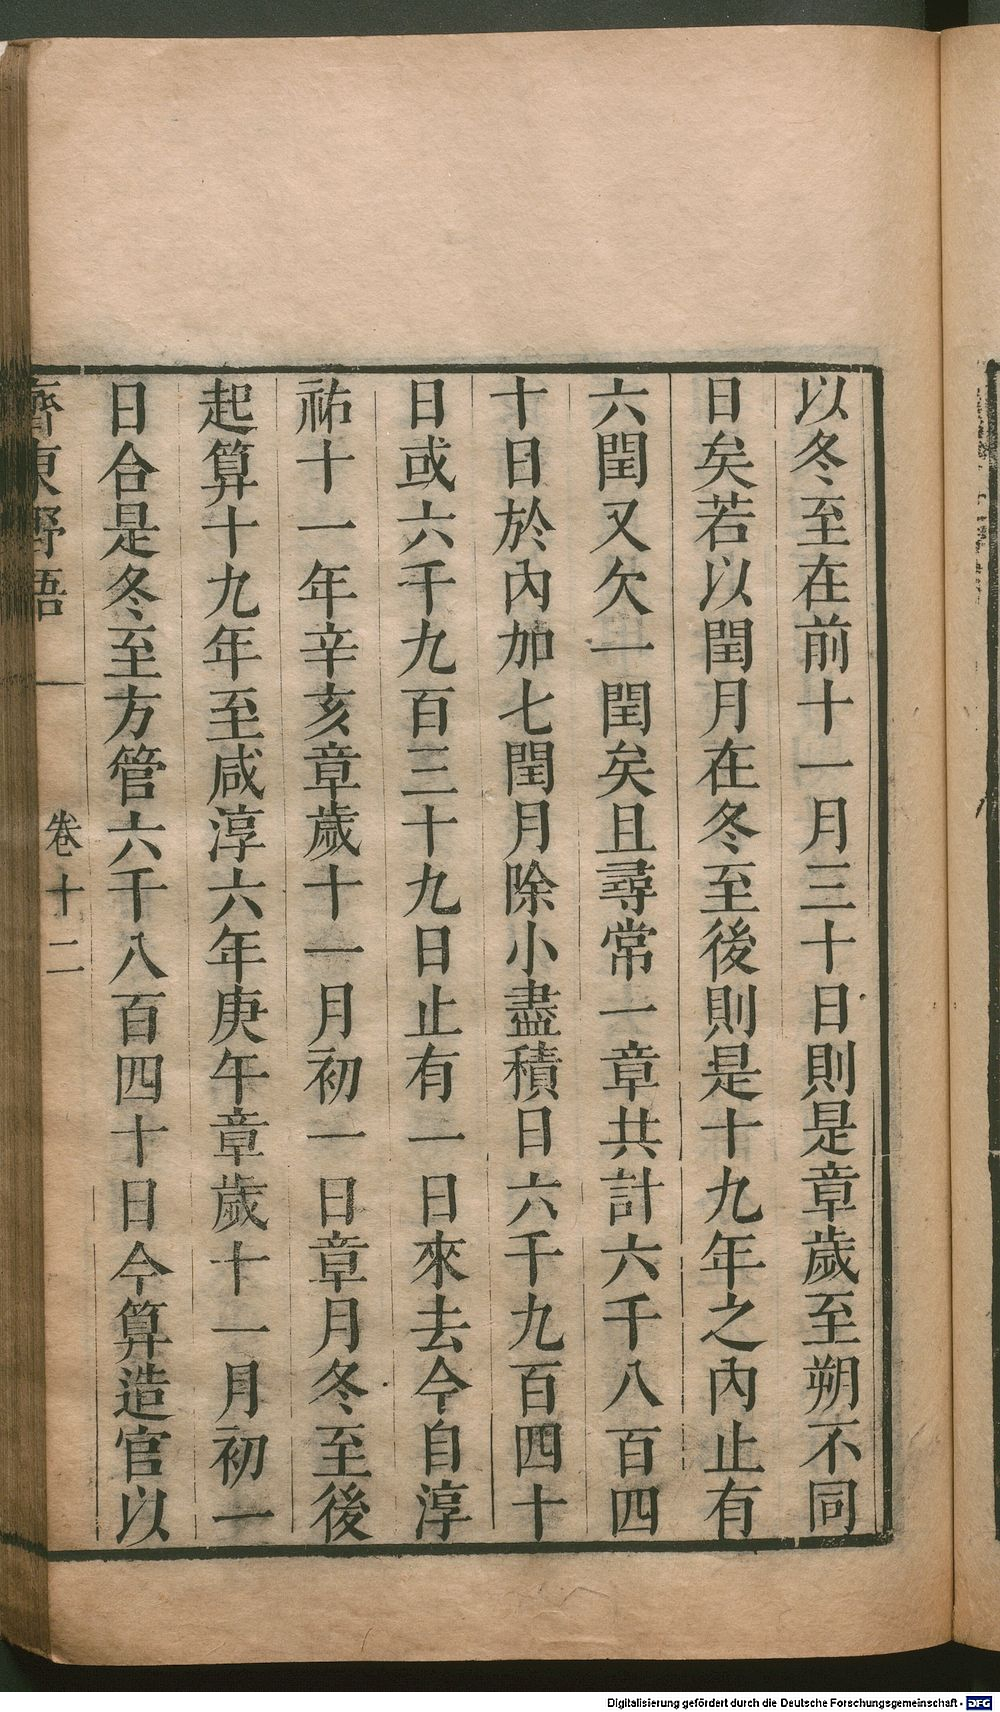 以冬至在前十一月三十日則是章歲至朔不同
日矣若以閏月在冬至後則是十九年之內止有
六閏又欠一閏矣且尋常一章共計六千八百四
十日於內加七閏月除小盡積日六千九百四十
日或六千九百三十九日止有一日來去今自淳
祐十一年辛亥章歲十一月初一日章月冬至後
起算十九年至咸淳六年庚午章歲十一月初一
日合是冬至方管六千八百四十日今算造官以
齊東野語
卷十二
Digitalisierung gefördert durch die Deutsche Forschungsgemeinschaft - DFG